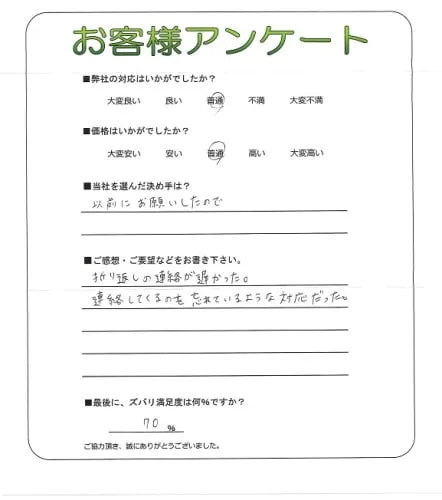 お客様アンケート
■弊社の対応はいかがでしたか？
大変良い 良い 普通 不満 大変不満
■価格はいかがでしたか？
大変安い 安い 普通 高い 大変高い
■当社を選んだ決め手は？
以前にお願いしたので
■ご感想・ご要望などをお書き下さい。
折り返しの連絡が遅かった。
連絡してくるのも忘れているような対応だった。
■最後に、ズバリ満足度は何％ですか？
70 ％
ご協力頂き、誠にありがとうございました。